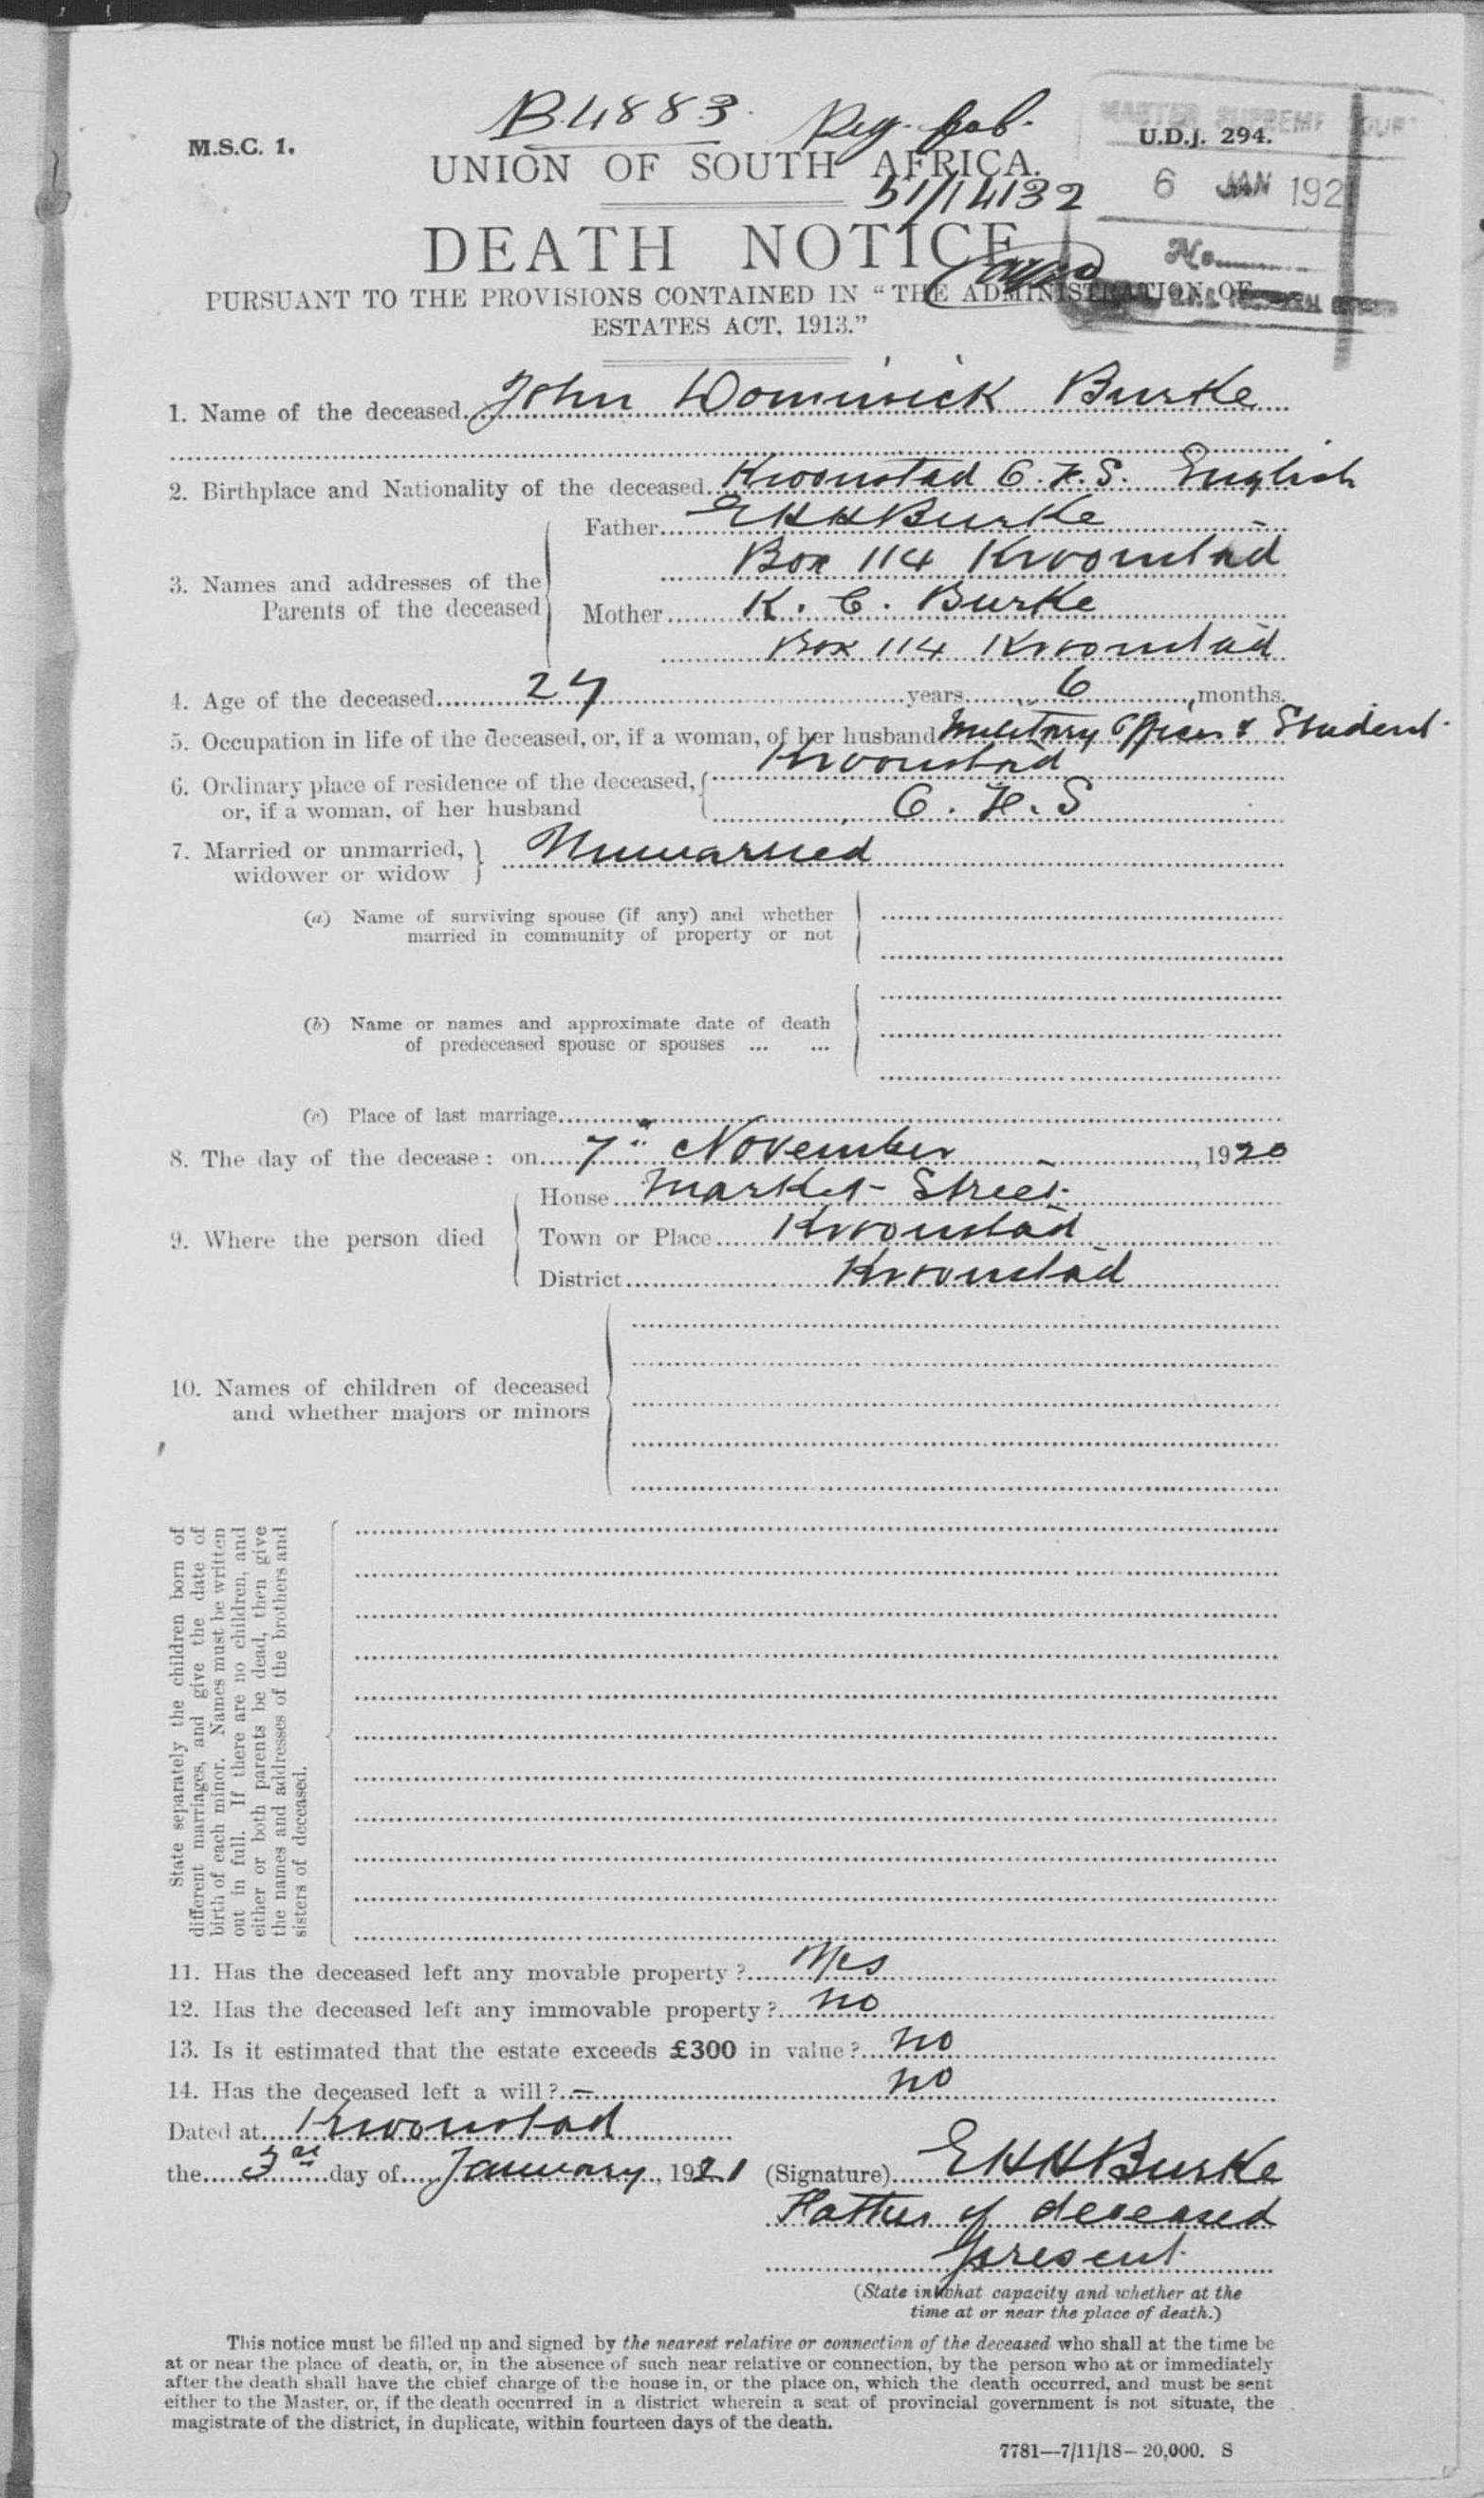 B4883.
M.S.C. 1.
U.D.J. 294.
UNION OF SOUTH AFRICA.
51/14132
6 JAN 192
DEATH NOTICE
No
PURSUANT TO THE PROVISIONS CONTAINED IN “THE ADMINISTRATION OF
ESTATES ACT, 1913.”
1. Name of the deceased John Dominick Burke
2. Birthplace and Nationality of the deceased Kroonstad O.F.S. English
Father EHHBurke
Box 114 Kroonstad
3. Names and addresses of the
Parents of the deceased
Mother K. C. Burke
Box 114 Kroonstad
4. Age of the deceased 27 years 6 months.
5. Occupation in life of the deceased, or, if a woman, of her husband Military Officer & Student
6. Ordinary place of residence of the deceased, Kroonstad
or, if a woman, of her husband O.F.S
7. Married or unmarried, Unmarried
widower or widow
(a) Name of surviving spouse (if any) and whether
married in community of property or not
(b) Name or names and approximate date of death
of predeceased spouse or spouses ... ...
(c) Place of last marriage
8. The day of the decease: on 7th November, 1920
House Market Street
9. Where the person died Town or Place Kroonstad
District Kroonstad
10. Names of children of deceased
and whether majors or minors
State separately the children born of
different marriages, and give the date of
birth of each minor. Names must be written
out in full. If there are no children, and
either or both parents be dead, then give
the names and addresses of the brothers and
sisters of deceased.
11. Has the deceased left any movable property? Yes
12. Has the deceased left any immovable property? no
13. Is it estimated that the estate exceeds £300 in value? no
14. Has the deceased left a will? — no
Dated at Kroonstad
the 3rd day of January, 1921 (Signature) EHHBurke
Father of deceased
present
(State in what capacity and whether at the
time at or near the place of death.)
This notice must be filled up and signed by the nearest relative or connection of the deceased who shall at the time be
at or near the place of death, or, in the absence of such near relative or connection, by the person who at or immediately
after the death shall have the chief charge of the house in, or the place on, which the death occurred, and must be sent
either to the Master, or, if the death occurred in a district wherein a seat of provincial government is not situate, the
magistrate of the district, in duplicate, within fourteen days of the death.
7781—7/11/18—20,000. S